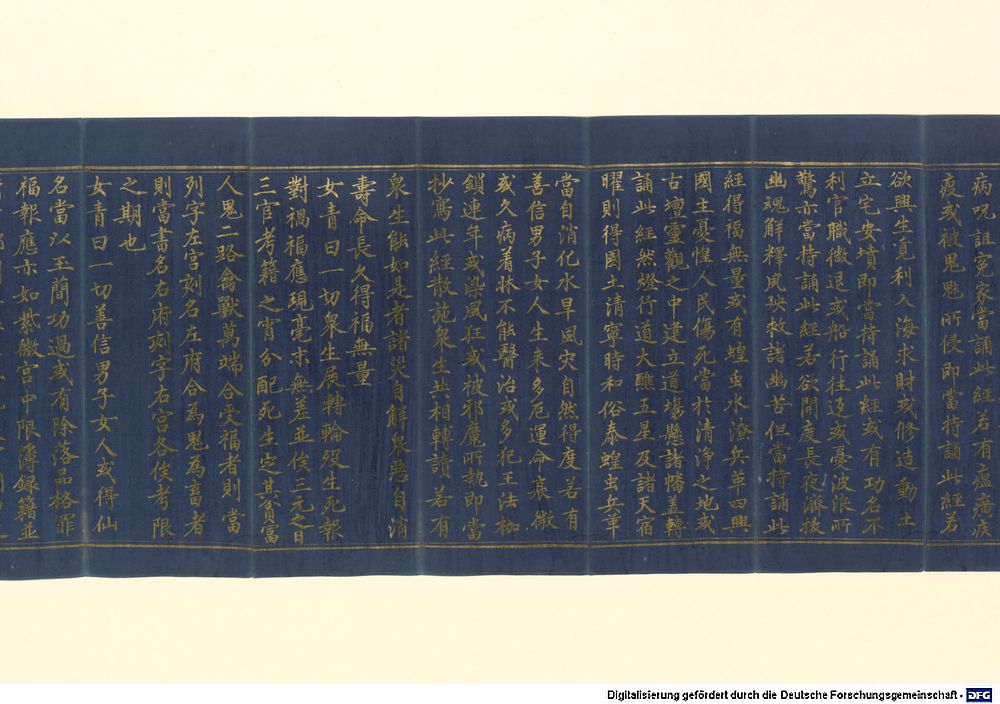 病呪詛寃家當誦此經若有瘟瘴疾
疫或被鬼魅所侵即當持誦此經若
欲興生覓利入海求財或修造動土
立宅安墳即當持誦此經或有功名不
利官職微退或船行往邊或憂波浪所
驚亦當持誦此經若欲開度長夜濟拔
幽魂解釋夙殃救諸幽苦但當持誦此
經得福無量或有蝗虫水潦兵革四興
國主憂惶人民傷死當於清淨之地或
古壇靈觀之中建立道塲懸諸幡蓋轉
誦此經然燈行道大醮五星及諸天宿
曜則得國土清寧時和俗泰蝗虫兵革
當自消化水旱風灾自然得度若有
善信男子女人生来多厄運命衰微
或久病着牀不能醫治或多犯王法枷
鎖連年或染風狂或被邪魔所執即當
抄寫此經散施衆生共相轉讀若有
衆生能如是者諸災自解衆惡自消
壽命長久得福無量
女青曰一切衆生展轉輪殁生死報
對禍福應現毫末無差並俟三元之日
三官考籍之宵分配死生定其貧富
人鬼二路禽獸萬端合受福者則當
列字左宫刻名左府合為鬼為畜者
則當書名右府刻字右宫各俟考限
之期也
女青曰一切善信男子女人或得仙
名當以玉簡功過或有除落品格罪
福報應亦如紫微宫中限簿録籍並
Digitalisierung gefördert durch die Deutsche Forschungsgemeinschaft - DFG